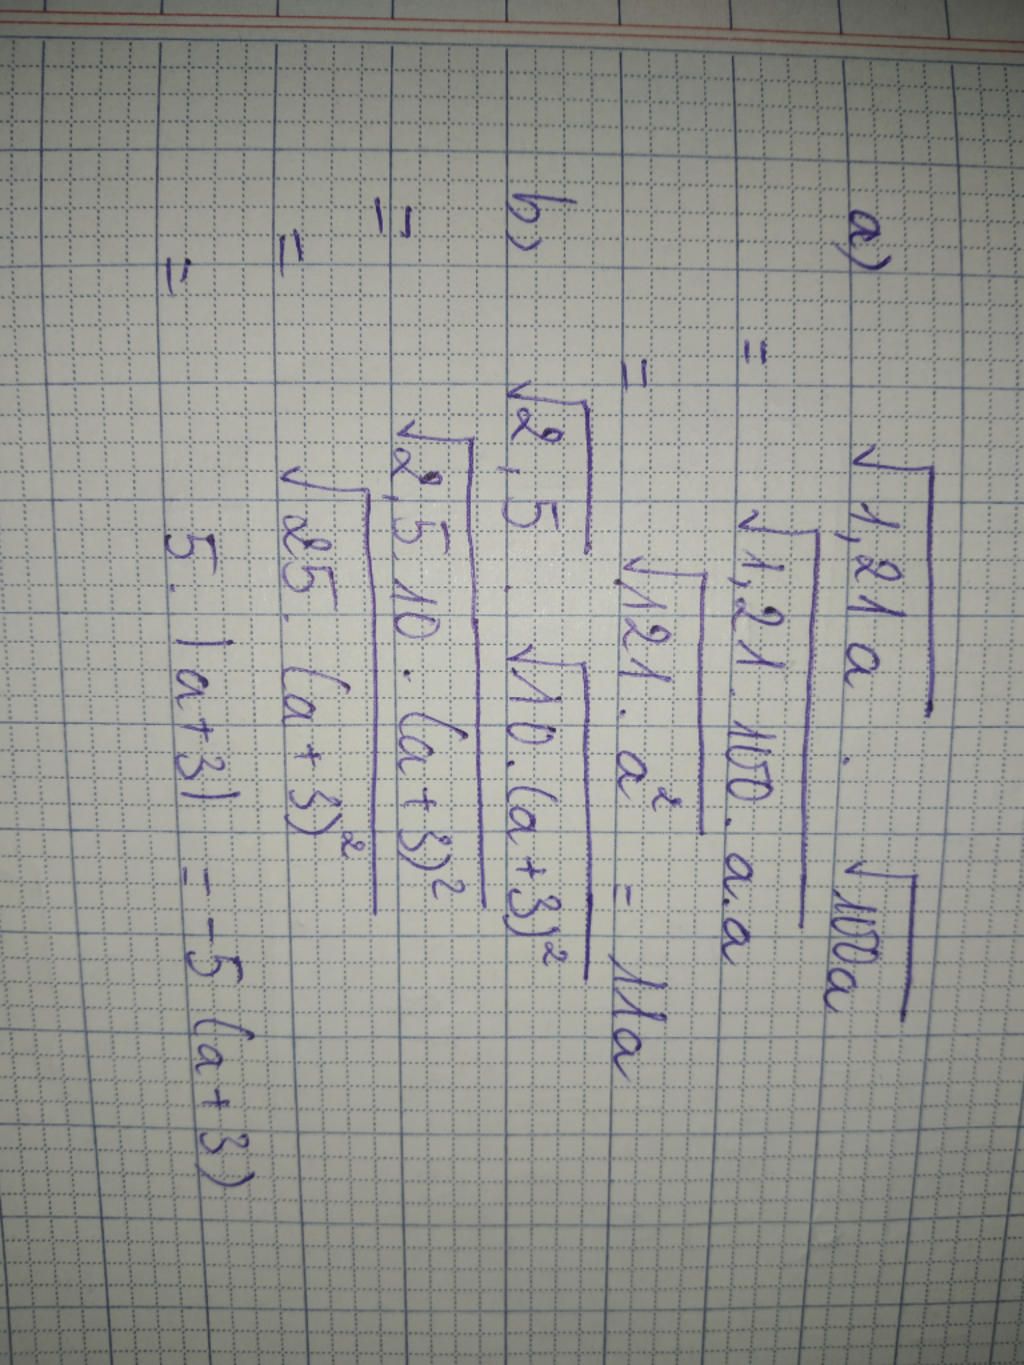 a) √1,21a . √100a
= √1,21.100.a.a
= √121.a² = 11a
b) √2,5 . √10.(a+3)²
= √2,5.10.(a+3)²
= √25.(a+3)²
= 5.|a+3| = -5(a+3)